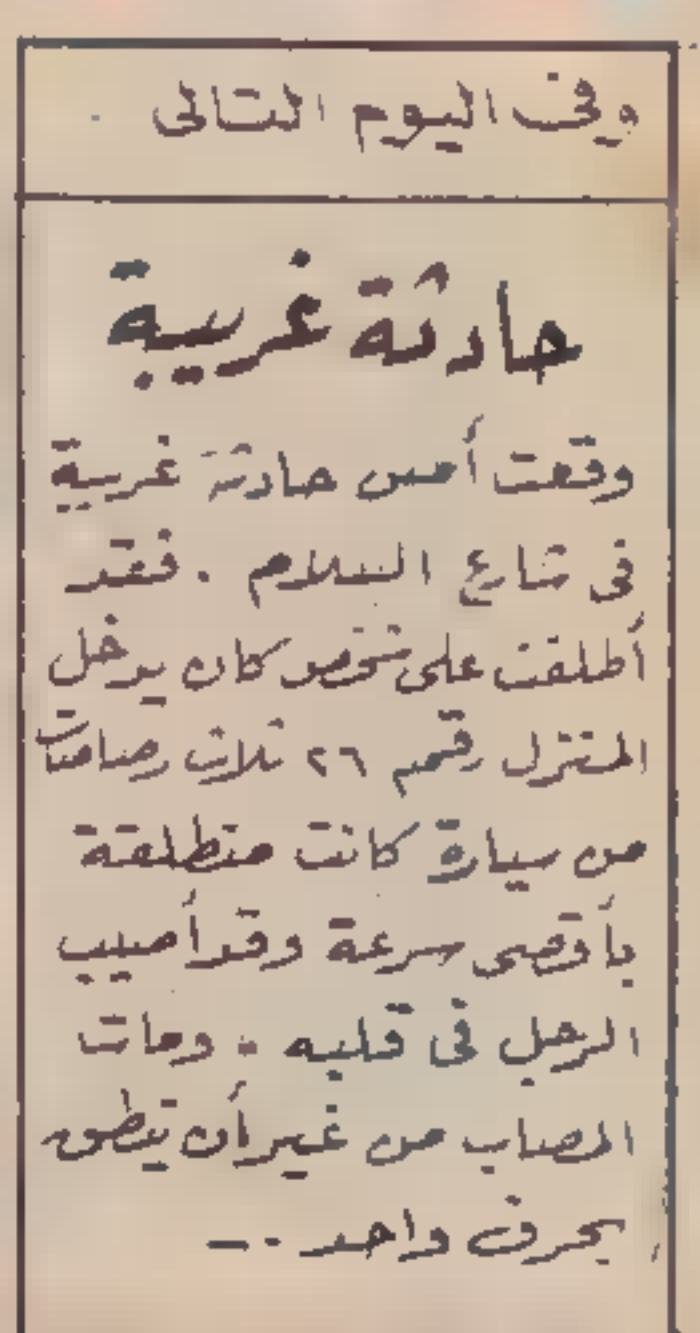 وفى اليوم التالى
حادثة غريبة
وقعت أمس حادثة غريبة
فى شارع السلام . فقد
أطلقت على شخص كان يدخل
المنزل رقم ٢٦ ثلاث رصاصات
من سيارة كانت منطلقة
بأقصى سرعة وقد أصيب
الرجل فى قلبه . ومات
المصاب من غير أن ينطق
بحرف واحد . —